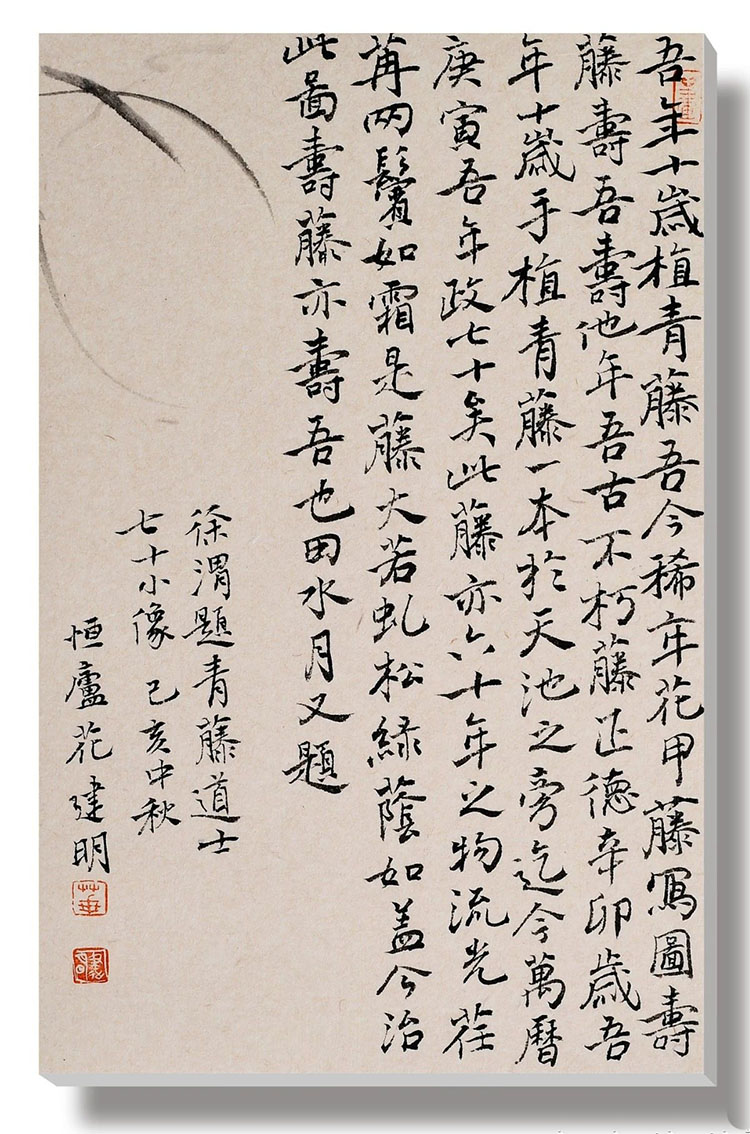 吾年十歲植青藤吾今稀年花甲藤冩圖壽
藤壽吾壽他年吾古不朽藤正德辛卯歲吾
年十歲手植青藤一本於天池之旁迄今萬曆
庚寅吾年政七十矣此藤亦六十年之物流光荏
苒两鬢如霜是藤大若虬松綠蔭如盖今治
此啚壽藤亦壽吾也田水月又題
徐渭題青藤道士
七十小像 己亥中秋
恒廬花建明
華